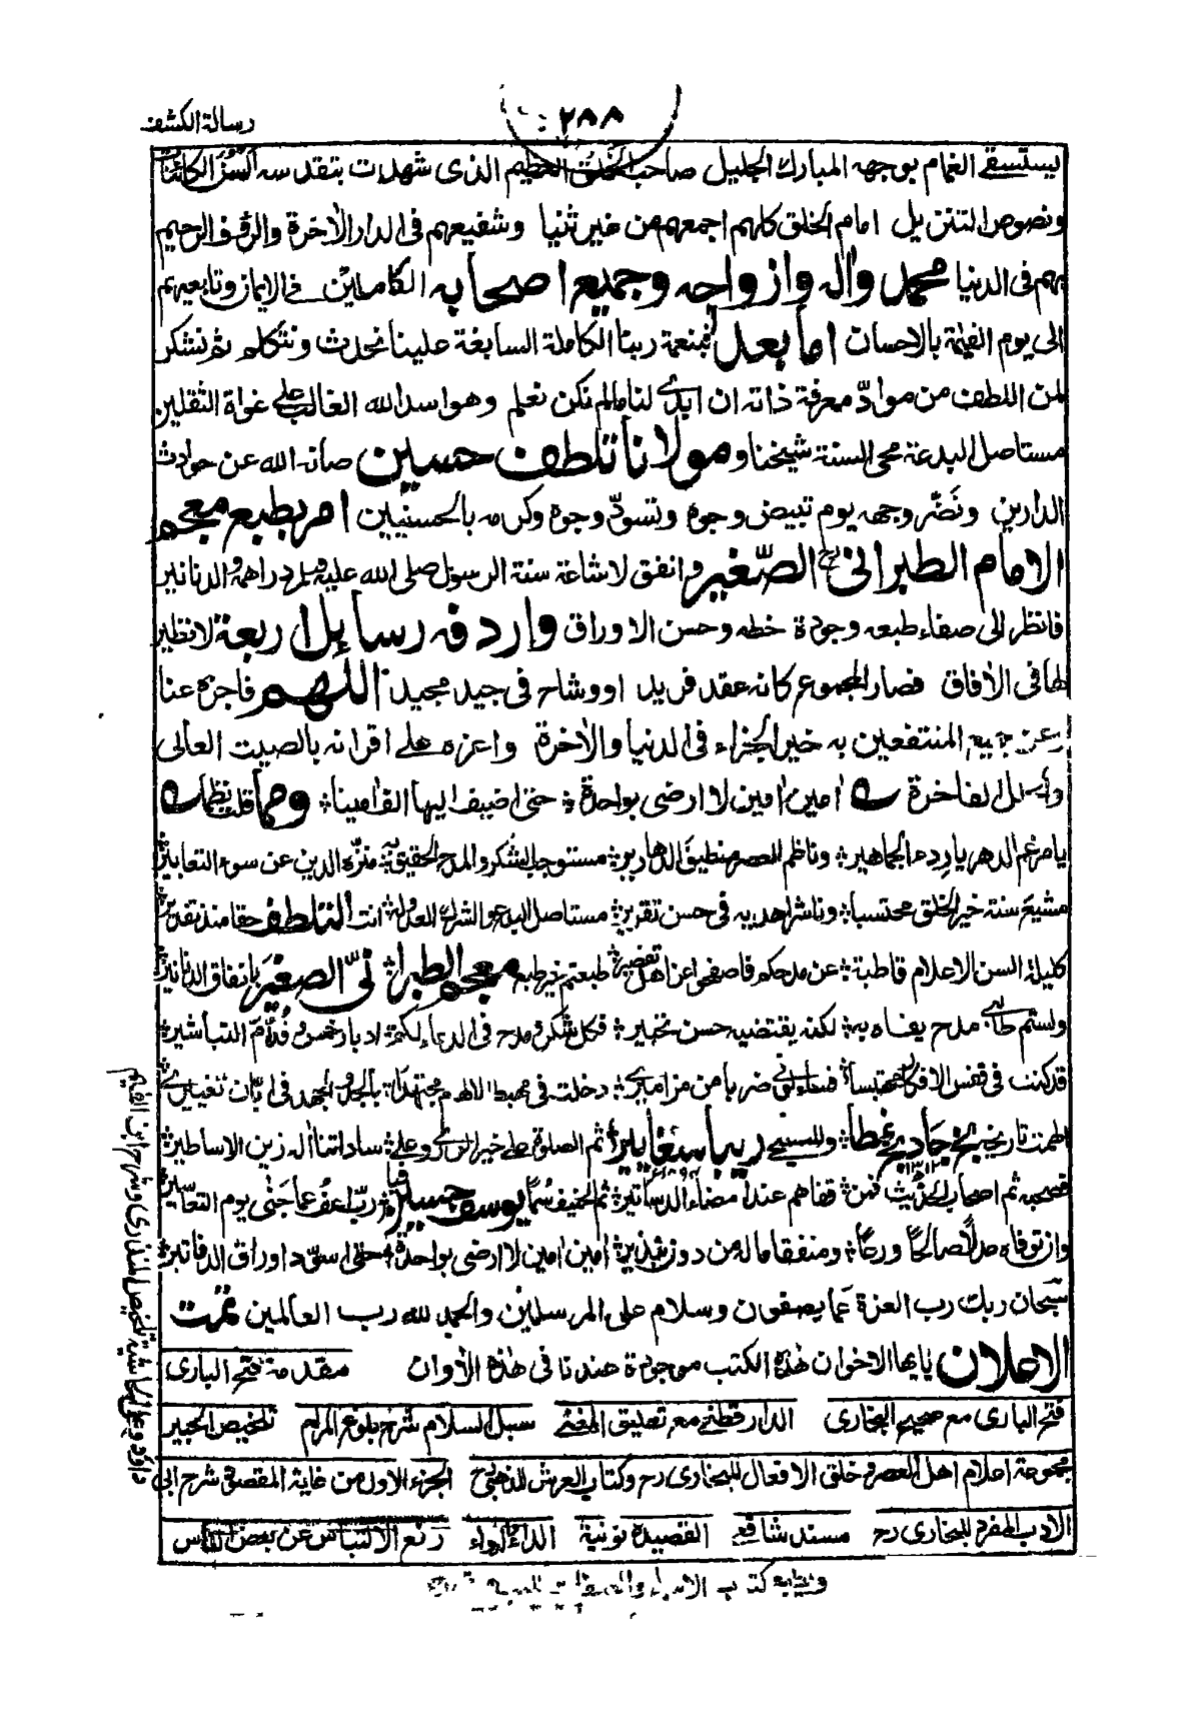 رسالة الكشف
٢٨٨
يستسقے الغمام بوجهه المبارك الجليل صاحب الخلق العظيم الذى شهدت بتقدسه السن الكائنات
ونصوص التنزيل امام الخلق كلهم اجمعهم من غير ثنيا وشفيعهم فى الدار الاٰخرة والرؤف الرحيم
بهم فى الدنيا محمد واٰله وازواجه وجميع اصحابه الكاملين فے الايمان وتابعيهم
الى يوم القيٰمة بالاحسان اما بعد فبنعمة ربنا الكاملة السابغة علينا نحدث ونتكلم ثم نشكر
لمن اللطف من موادّ معرفة ذاته ان ابدى لنا مالم نكن نعلم وهو اسد الله الغالب على غواة الثقلين
مستاصل البدعة محى السنة شيخنا ومولانا تلطف حسين صانه الله عن حوادث
الدارين ونَضّر وجهه يوم تبيض وجوه وتسودّ وجوه وكرمه بالحسنيين امر بطبع معجم
الامام الطبرانى رح الصّغير وانفق لاشاعة سنة الرسول صلى الله عليه وسلم دراهمه والدنانير
فانظر الى صفاء طبعه وجودة خطه وحسن الاوراق واردفه رسايل اربعة لا نظير
لها فى الاٰفاق فصار المجموع كانه عقد فريد او وشاح فى جيد مجيد اللهم فاجزه عنا
وعن جميع المنتفعين به خير الجزاء فى الدنيا والاٰخرة واعزه على اقرانه بالصيت العالى
الفاخرة امين امين لا ارضى بواحدة ؞ حتى اضيف اليها الف امينا ؞ ومما قلت نظما
يا مرغم الدهر يا رِدء الجماهير ؞ وناظم العصر منطيق الدهارير ؞ مستوجب الشكر والمدح الحقيق به ؞ منزّه الدين عن سوء التعابير ؞
مشيع سنة خير الخلق محتسبا ؞ وناشر هديه فى حسن تقرير ؞ مستاصل البدع والشرك العدو له ؞ انت التلطف حقا منذ تقدير ؞
كليلة السن الاعلام قاطبة ؞ عن مدحكم فاصفحوا عنا هل تقصير ؞ طبعتم خير طبع معجم الطبرا ؞ نىّ الصغير بانفاق الدنانير ؞
ولستم طالبى مدح يفاه به ؞ لكنه يقتضيه حسن تخيير ؞ فكل شكر ومدح فى الدعاء لكم ؞ ادبار خمس وقُدّام التباشير ؞
قد كنت فى قفس الافكار محتبسا ؞ ضربا من مزاميرى ؞ دخلت فى محبط الالهام مجتهدا ؞ بالجد والجهد فى ابّان تغييرى ؞
الهمت تاريخه بخ جاد بخ بخ عطا ؞ وللمسيحے زيبا سغايير ؞ ثم الصلوة على خير الورى وعلى ؞ ساداتنا اٰله زين الاساطير ؞
١٣١٢
فصحبه ثم اصحاب الحديث فمن ؞ قفاهم عند امضاء الدساتير ؞ ثم الحنيف سُمّا يوسف حسين ؞ ربّ اعف عما جَنٰى يوم التعاسير ؞
وان توفاه عدلا صالحًا ورعًا ؞ ومنفقا ماله من دون تبذير ؞ امين امين لا ارضى بواحدة ؞ حتى اسوّد اوراق الدفاتير ؞
سبحان ربك رب العزة عما يصفون وسلام على المرسلين والحمد لله رب العالمين تمت
الاعلان يايها الاخوان هٰذه الكتب موجودة عندنا فى هٰذه الاٰوان مقدمة فتح البارى
فتح البارى مع صحيح البخارى الدار قطنى مع تعليق المغنے سبل السلام شرح بلوغ المرام تلخيص الحبير
مجموعة اعلام اهل العصر وخلق الافعال للبخارى رح وكتاب العرش للذهبى رح الجزء الاول من غاية المقصود شرح ابى
الادب المفرد للبخارى رح مسند شافعے القصيدة نونية الداء والدواء رفع الالتباس عن بعض الناس
داؤد وعلى حاشية تلخيص المنذرى وشرح ابن القيم
كتاب الاسماء والصفات